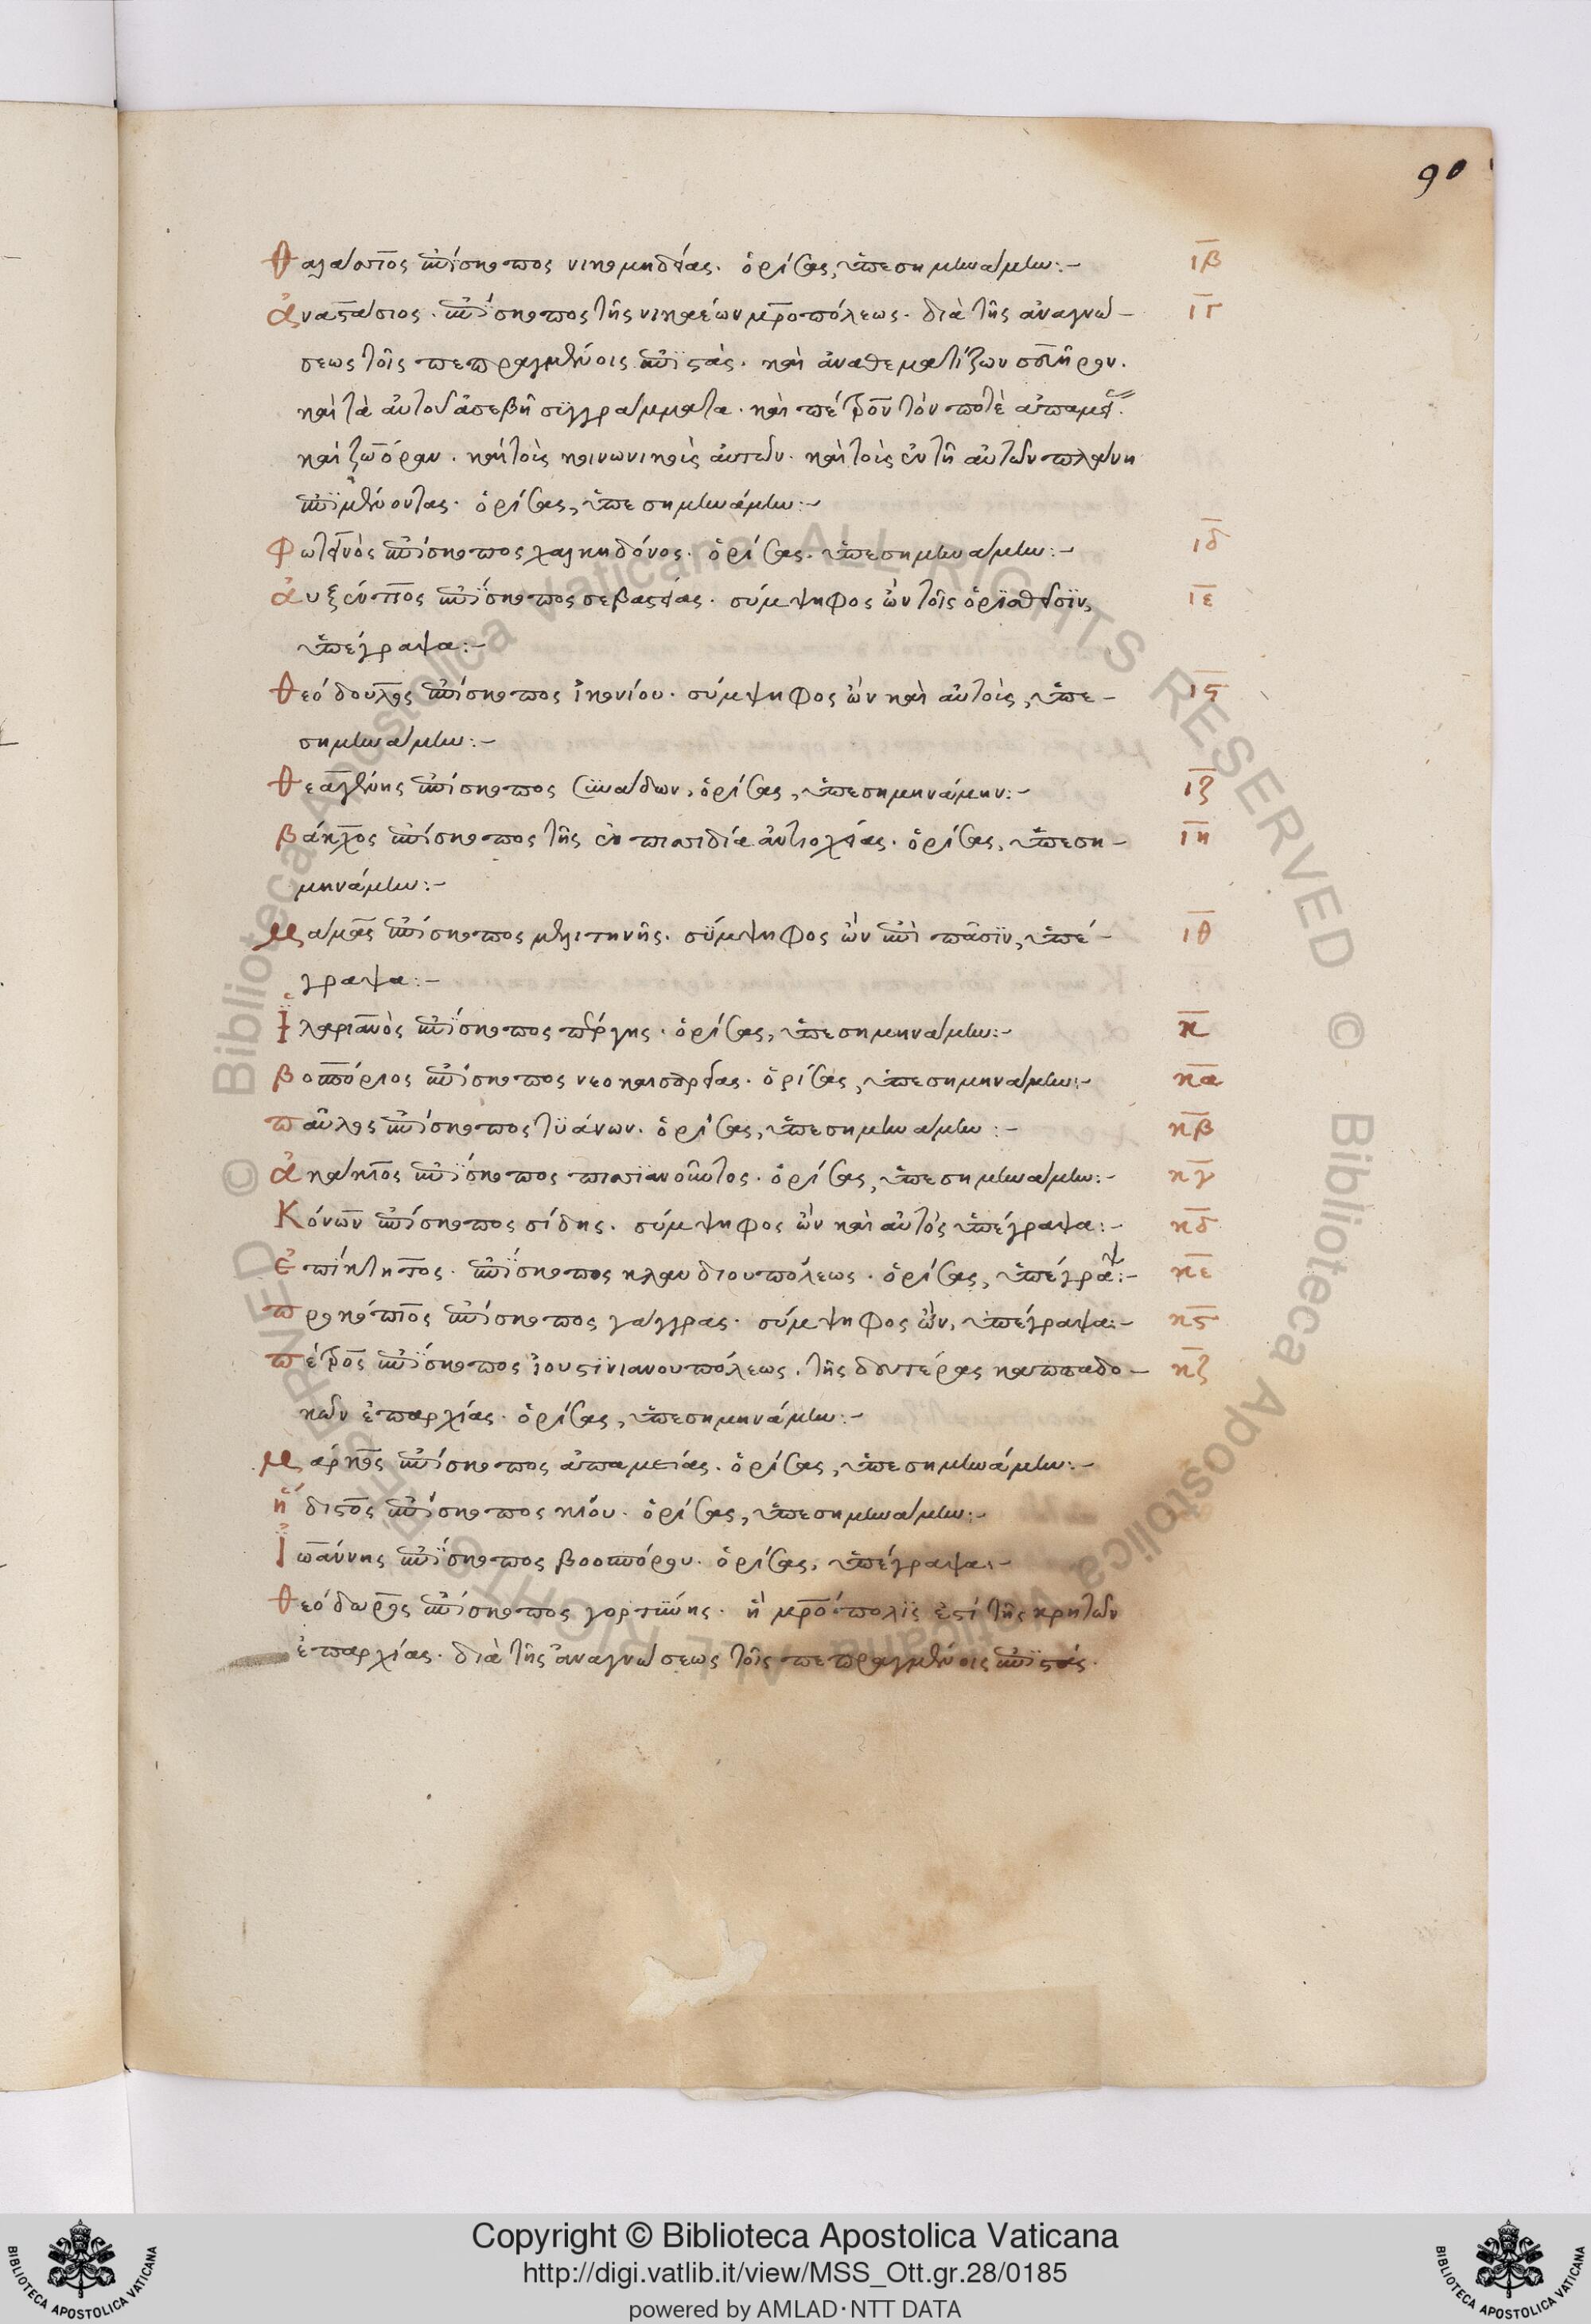 90
Θαλάσσιος ἐπίσκοπος νικομηδείας. ὁρίσας, ὑπεσημηνάμην:– ιβ
ἀναστάσιος. ἐπίσκοπος τῆς νικαέων μροπόλεως. διὰ τῆς ἀναγνώ– ιγ
σεως τοῖς πεπραγμένοις ἐπιστὰς. καὶ ἀναθεματίζων σευῆρον.
καὶ τὰ αὐτοῦ ἀσεβῆ συγγράμματα. καὶ πέτρον τὸν ποτὲ ἀπαμείας.
καὶ ζωόραν. καὶ τοὺς κοινωνικοὺς αὐτῶν. καὶ τοὺς ἐν τῆ αὐτῶν πλάνη
ἐπιμένοντας. ὁρίσας, ὑπεσημηνάμην:–
Φωτεινὸς ἐπίσκοπος χαλκηδόνος. ὁρίσας. ὑπεσημηνάμην:– ιδ
ἀυξέντιος ἐπίσκοπος σεβαστείας. σύμψηφος ὢν τοῖς ὁρισθεῖσιν, ιε
ὑπέγραψα:–
Θεόδουλος ἐπίσκοπος ἰκονίου. σύμψηφος ὢν καὶ αὐτοῖς, ὑπε– ις
σημηνάμην:–
Θεαγένης ἐπίσκοπος συνάδων, ὁρίσας, ὑπεσημηνάμην:– ιζ
βάκχος ἐπίσκοπος τῆς ἐν πισιδία ἀντιοχείας. ὁρίσας, ὑπεση– ιη
μηνάμην:–
μαμᾶς ἐπίσκοπος μελιτηνῆς. σύμψηφος ὢν ἐπὶ πᾶσιν, ὑπέ– ιθ
γραψα:–
ἱλαριανὸς ἐπίσκοπος πέργης. ὁρίσας, ὑπεσημηνάμην:– κ
βοσπόριος ἐπίσκοπος νεοκαισαρείας. ὁρίσας, ὑπεσημηνάμην:– κα
παῦλος ἐπίσκοπος τυάνων. ὁρίσας, ὑπεσημηνάμην:– κβ
ἀκάκιος ἐπίσκοπος πισινοῦντος. ὁρίσας, ὑπεσημηνάμην:– κγ
Κόνων ἐπίσκοπος σίδης. σύμψηφος ὢν καὶ αὐτὸς ὑπέγραψα:– κδ
ἐπίκτητος. ἐπίσκοπος κλαυδιουπόλεως. ὁρίσας, ὑπέγραψα:– κε
προκόπιος ἐπίσκοπος γάγγρας. σύμψηφος ὢν, ὑπέγραψα:– κς
πέτρος ἐπίσκοπος ἰουστινιανουπόλεως. τῆς δευτέρας καππαδο– κζ
κῶν ἐπαρχίας. ὁρίσας, ὑπεσημηνάμην:–
μάρκος ἐπίσκοπος ἀπαμείας. ὁρίσας, ὑπεσημηνάμην:–
ἥδιστος ἐπίσκοπος κίου. ὁρίσας, ὑπεσημηνάμην:–
ἰωάννης ἐπίσκοπος βοοσπόρου. ὁρίσας, ὑπέγραψα:–
Θεόδωρος ἐπίσκοπος γορτύνης. ἣ μρόπολις ἐστί τῆς κρητῶν
ἐπαρχίας. διὰ τῆς ἀναγνώσεως τοῖς πεπραγμένοις ἐπιστάς.
© Biblioteca Apostolica Vaticana ALL RIGHTS RESERVED © Biblioteca Apostolica Vaticana ALL RIGHTS RESERVED
Copyright © Biblioteca Apostolica Vaticana
http://digi.vatlib.it/view/MSS_Ott.gr.28/0185
powered by AMLAD·NTT DATA
BIBLIOTECA APOSTOLICA VATICANA
BIBLIOTECA APOSTOLICA VATICANA